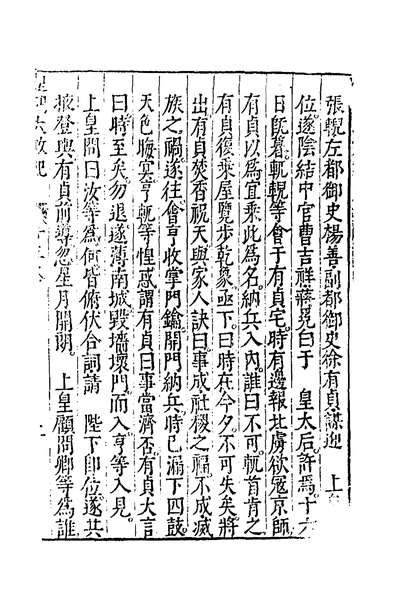 張軏左都御史楊善副都御史徐有貞謀迎　上
位遂陰結中官曹吉祥蔣冕白于　皇太后許焉十六
日旣暮軏輗等會于有貞宅時有邊報北虜欲寇京師
有貞以爲宜乘此爲名納兵入內誰曰不可軏首肯之
有貞復乘屋覽步乾象亟下曰時在今夕不可失矣將
出有貞焚香祝天與家人訣曰事成社稷之福不成滅
族之禍遂往會亨收掌門鑰開門納兵時已漏下四鼓
天色晦冥亨軏等惶惑謂有貞曰事當濟否有貞大言
曰時至矣勿退遂薄南城毀墻壞門而入亨等入見
上皇問曰汝等爲何皆俯伏合詞請　陛下卽位遂共
掖登輿有貞前導忽星月開朗　上皇顧問卿等爲誰